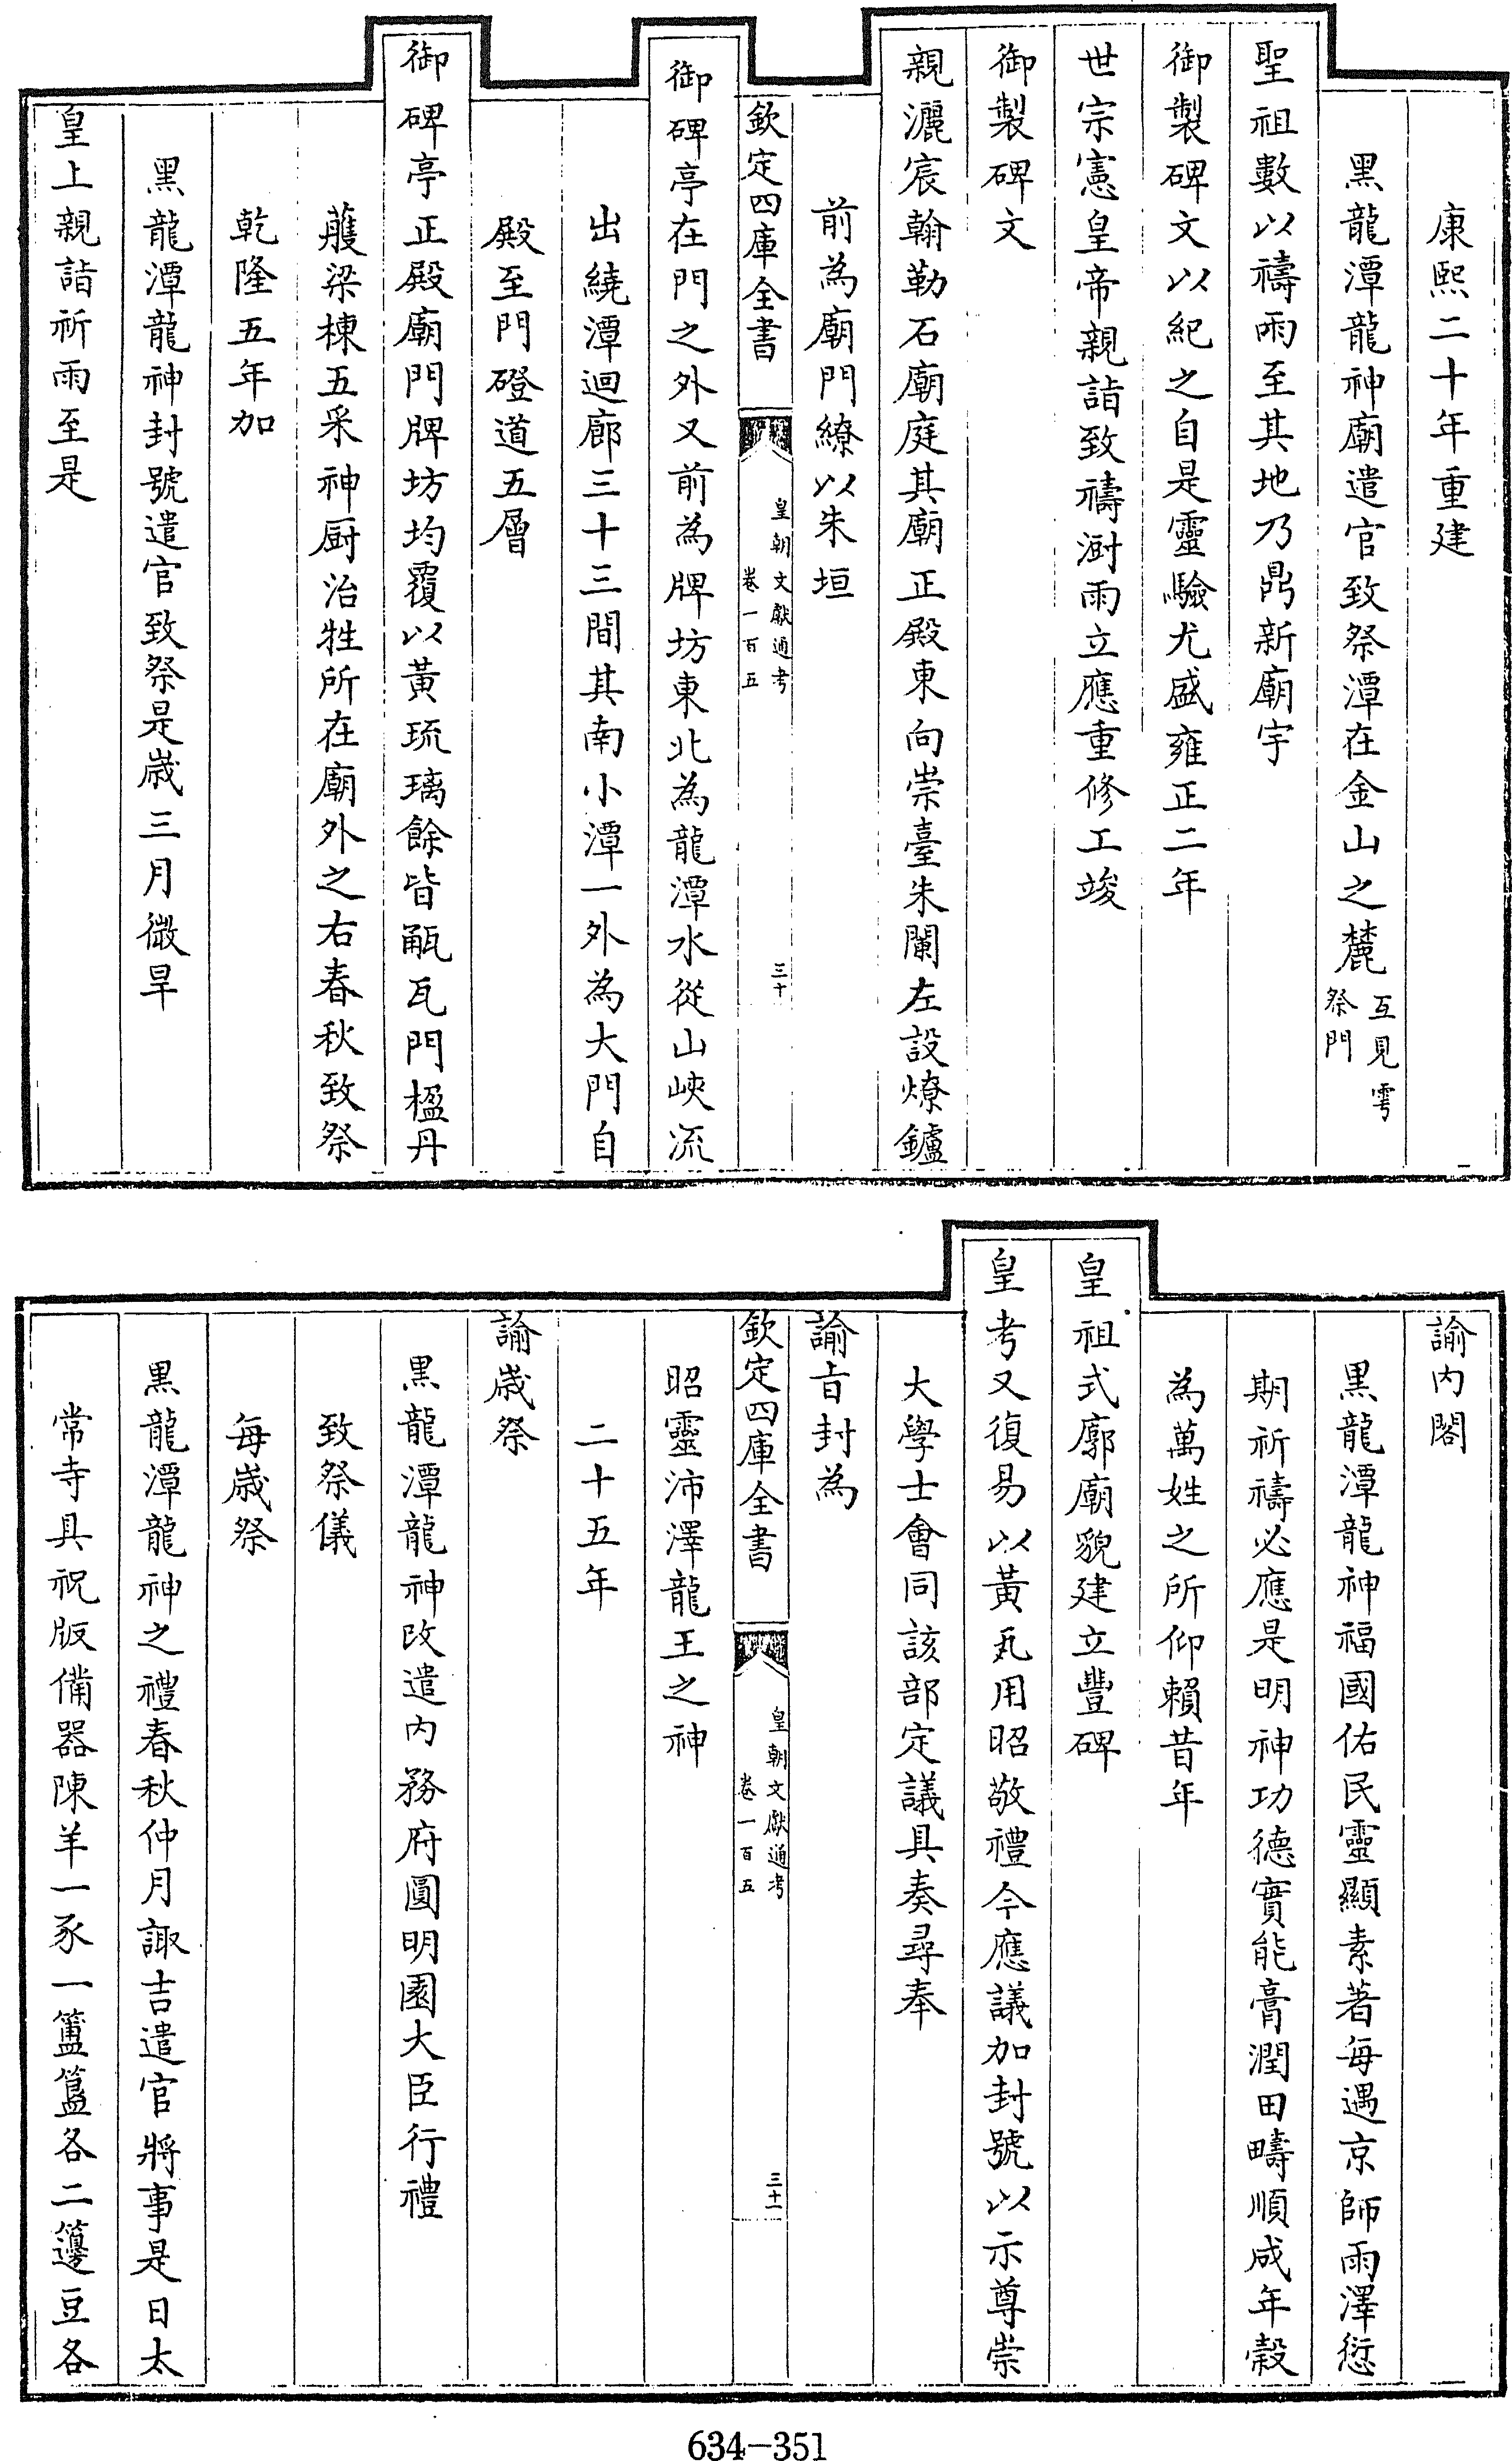 康熙二十年重建
黑龍潭龍神廟遣官致祭潭在金山之麓互見雩祭門
聖祖數以禱雨至其地乃鼎新廟宇
御製碑文以紀之自是靈驗尤盛雍正二年
世宗憲皇帝親詣致禱澍雨立應重修工竣
御製碑文
親灑宸翰勒石廟庭其廟正殿東向崇臺朱闌左設燎鑪
前為廟門繚以朱垣
欽定四庫全書
皇朝文獻通考
卷一百五
三十
御碑亭在門之外又前為牌坊東北為龍潭水從山峽流
出繞潭迴廊三十三間其南小潭一外為大門自
殿至門磴道五層
御碑亭正殿廟門牌坊均覆以黃琉璃餘皆㼧瓦門楹丹
雘梁棟五采神厨治牲所在廟外之右春秋致祭
乾隆五年加
黑龍潭龍神封號遣官致祭是歲三月微旱
皇上親詣祈雨至是
諭內閣
黑龍潭龍神福國佑民靈顯素著每遇京師雨澤愆
期祈禱必應是明神功德實能膏潤田疇順成年穀
為萬姓之所仰賴昔年
皇祖式廓廟貌建立豐碑
皇考又復易以黃瓦用昭敬禮今應議加封號以示尊崇
大學士會同該部定議具奏尋奉
諭旨封為
欽定四庫全書
皇朝文獻通考
卷一百五
三十一
昭靈沛澤龍王之神
二十五年
諭歲祭
黑龍潭龍神改遣內務府圓明園大臣行禮
致祭儀
每歲祭
黑龍潭龍神之禮春秋仲月諏吉遣官將事是日太
常寺具祝版備器陳羊一豕一簠簋各二籩豆各
634-351